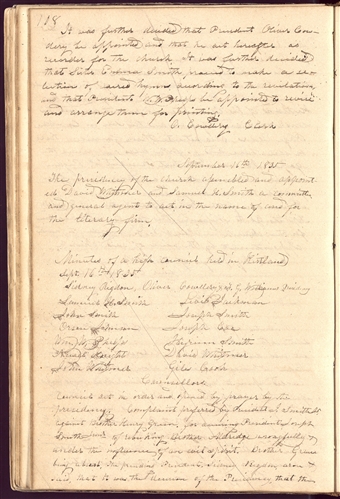 108
It was further decided that President Oliver Cow-
dery be appointed and that he act hereafter as
recorder for the church. It was further decided
that Sister Emma Smith proceed to make a se-
lection of sacred hymns according to the revelation,
and that President W. W. Phelps be appointed to revise
and arrange them for printing.
O. Cowdery Clerk
September 16th 1835
The presidency of the church assembled and appoint-
ed David Whitmer and Samuel H. Smith a committee
and general agents to act in the name of and for
the literary firm.
Minutes of a high council held in Kirtland
Sept. 16th 1835
Sidney Rigdon, Oliver Cowdery & F. G. Williams
Samuel H. Smith
John Smith Joseph Smith
Orson Johnson Joseph Coe
Hyrum Smith
David Whitmer
John Whitmer Giles Cook
Councillors
Council met in order and opened by prayer by the
presidency. Complaint prefered by President J. Smith Jr
against Brother Henry Green, for accusing President Joseph
Smith of Brother Aldridge wrongfully &
under the influence of an evil spirit. Brother Green
President Sidney Rigdon arose &
said, that it was the decision of the Presidency that